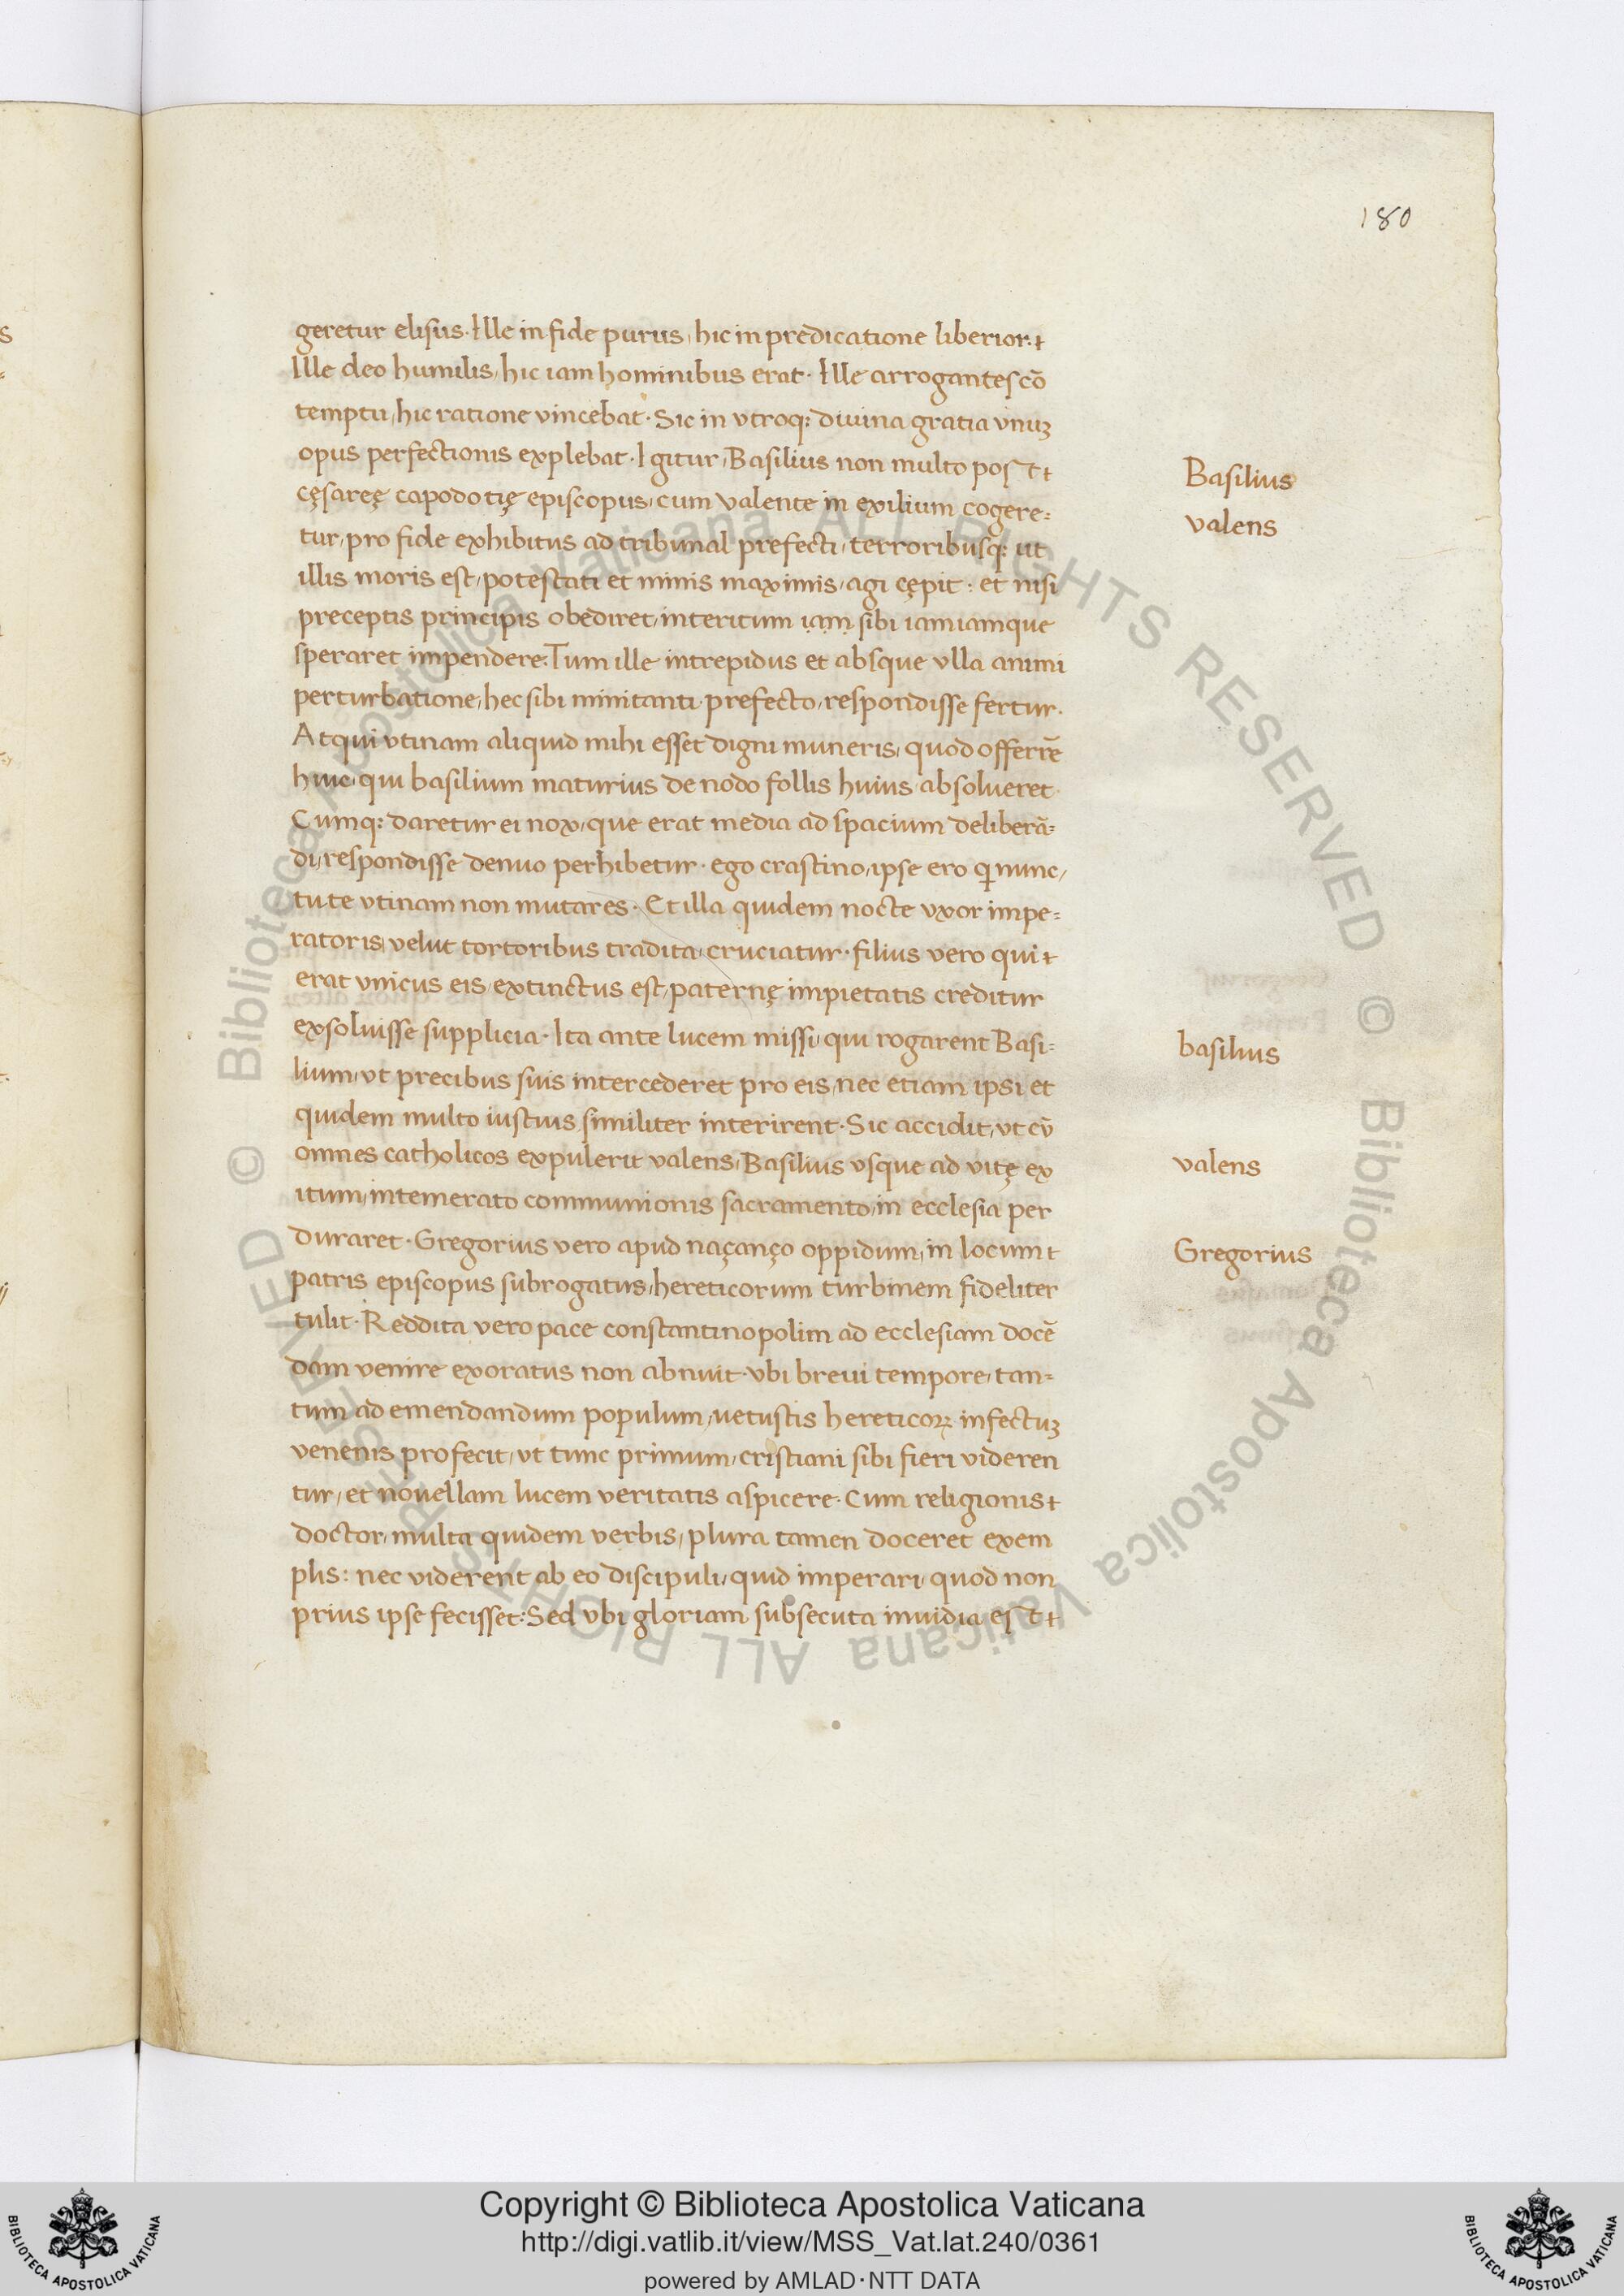 180
geretur elisus. Ille in fide purus, hic in predicatione liberior.
Ille deo humilis, hic iam hominibus erat. Ille arrogantes cō
temptu, hic ratione vincebat. Sic in vtroq; diuina gratia vnuꝫ
opus perfectionis explebat. Igitur, Basilius non multo post
cęsareę capodotię episcopus, cum valente in exilium cogere=
tur, pro fide exhibitus ad tribunal prefecti, terroribusq; ut
illis moris est, potestati et minis maximis, agi cępit: et nisi
preceptis principis obediret, interitum iam sibi iamiamque
speraret impendere: Tum ille intrepidus et absque vlla animi
perturbatione, hec sibi minitanti prefecto, respondisse fertur.
Atqui vtinam aliquid mihi esset digni muneris, quod offerrē
huic, qui basilium maturius de nodo follis huius absolueret.
Cumq; daretur ei nox, que erat media ad spacium deliberā=
di, respondisse denuo perhibetur. ego crastino, ipse ero qͥ nunc,
tu te vtinam non mutares. Et illa quidem nocte vxor impe=
ratoris, velut tortoribus tradita, cruciatur. filius vero qui
erat vnicus eis, extinctus est, paternę impietatis creditur
exsoluisse supplicia. Ita ante lucem missi, qui rogarent Basi=
lium, vt precibus suis intercederet pro eis, nec etiam ipsi et
quidem multo iustius similiter interirent. Sic accidit, vt cū
omnes catholicos expulerit valens, Basilius vsque ad vitę ex
itum, intemerato communionis sacramento, in ecclesia per
duraret. Gregorius vero apud naçanço oppidum, in locum
patris episcopus subrogatus, hereticorum turbinem fideliter
tulit. Reddita vero pace constantinopolim ad ecclesiam docē
dam venire exoratus non abnuit. vbi breui tempore, tan=
tum ad emendandum populum, uetustis hereticoꝝ infectuꝫ
venenis profecit, vt tunc primum, cristiani sibi fieri videren
tur, et nouellam lucem veritatis aspicere. Cum religionis
doctor, multa quidem verbis, plura tamen doceret exem
plis: nec viderent ab eo discipuli, quid imperari, quod non
prius ipse fecisset: Sed vbi gloriam subsecuta inuidia est
Basilius
valens
basilius
valens
Gregorius
Copyright © Biblioteca Apostolica Vaticana
http://digi.vatlib.it/view/MSS_Vat.lat.240/0361
powered by AMLAD·NTT DATA
BIBLIOTECA APOSTOLICA VATICANA
BIBLIOTECA APOSTOLICA VATICANA
© Biblioteca Apostolica Vaticana ALL RIGHTS RESERVED
© Biblioteca Apostolica Vaticana ALL RIGHTS RESERVED